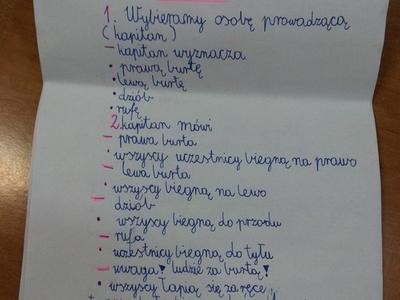 1. Wybieramy osobę prowadzącą
(kapitan)
- kapitan wyznacza
• prawą burtę
• lewą burtę
• dziób
• rufę
2. kapitan mówi
- prawa burta
• wszyscy uczestnicy biegną na prawo
- lewa burta
• wszyscy biegną na lewo
- dziób
• wszyscy biegną do przodu
- rufa
• uczestnicy biegną do tyłu
- uwaga! ludzie za burtą!
• wszyscy łapią się za ręce i